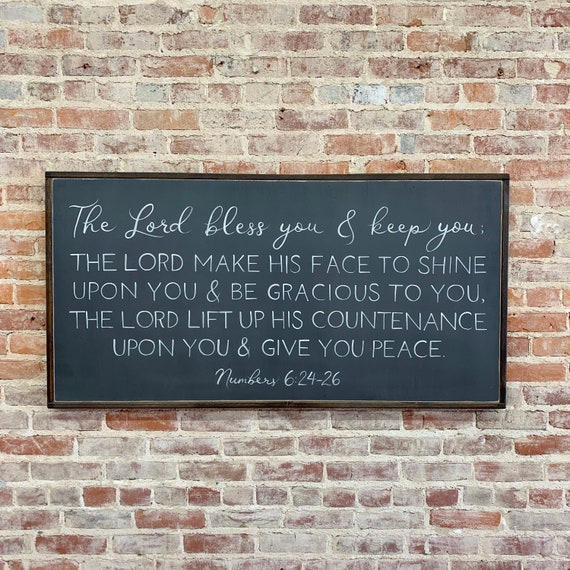 The Lord bless you & keep you;
THE LORD MAKE HIS FACE TO SHINE
UPON YOU & BE GRACIOUS TO YOU,
THE LORD LIFT UP HIS COUNTENANCE
UPON YOU & GIVE YOU PEACE.
Numbers 6:24-26